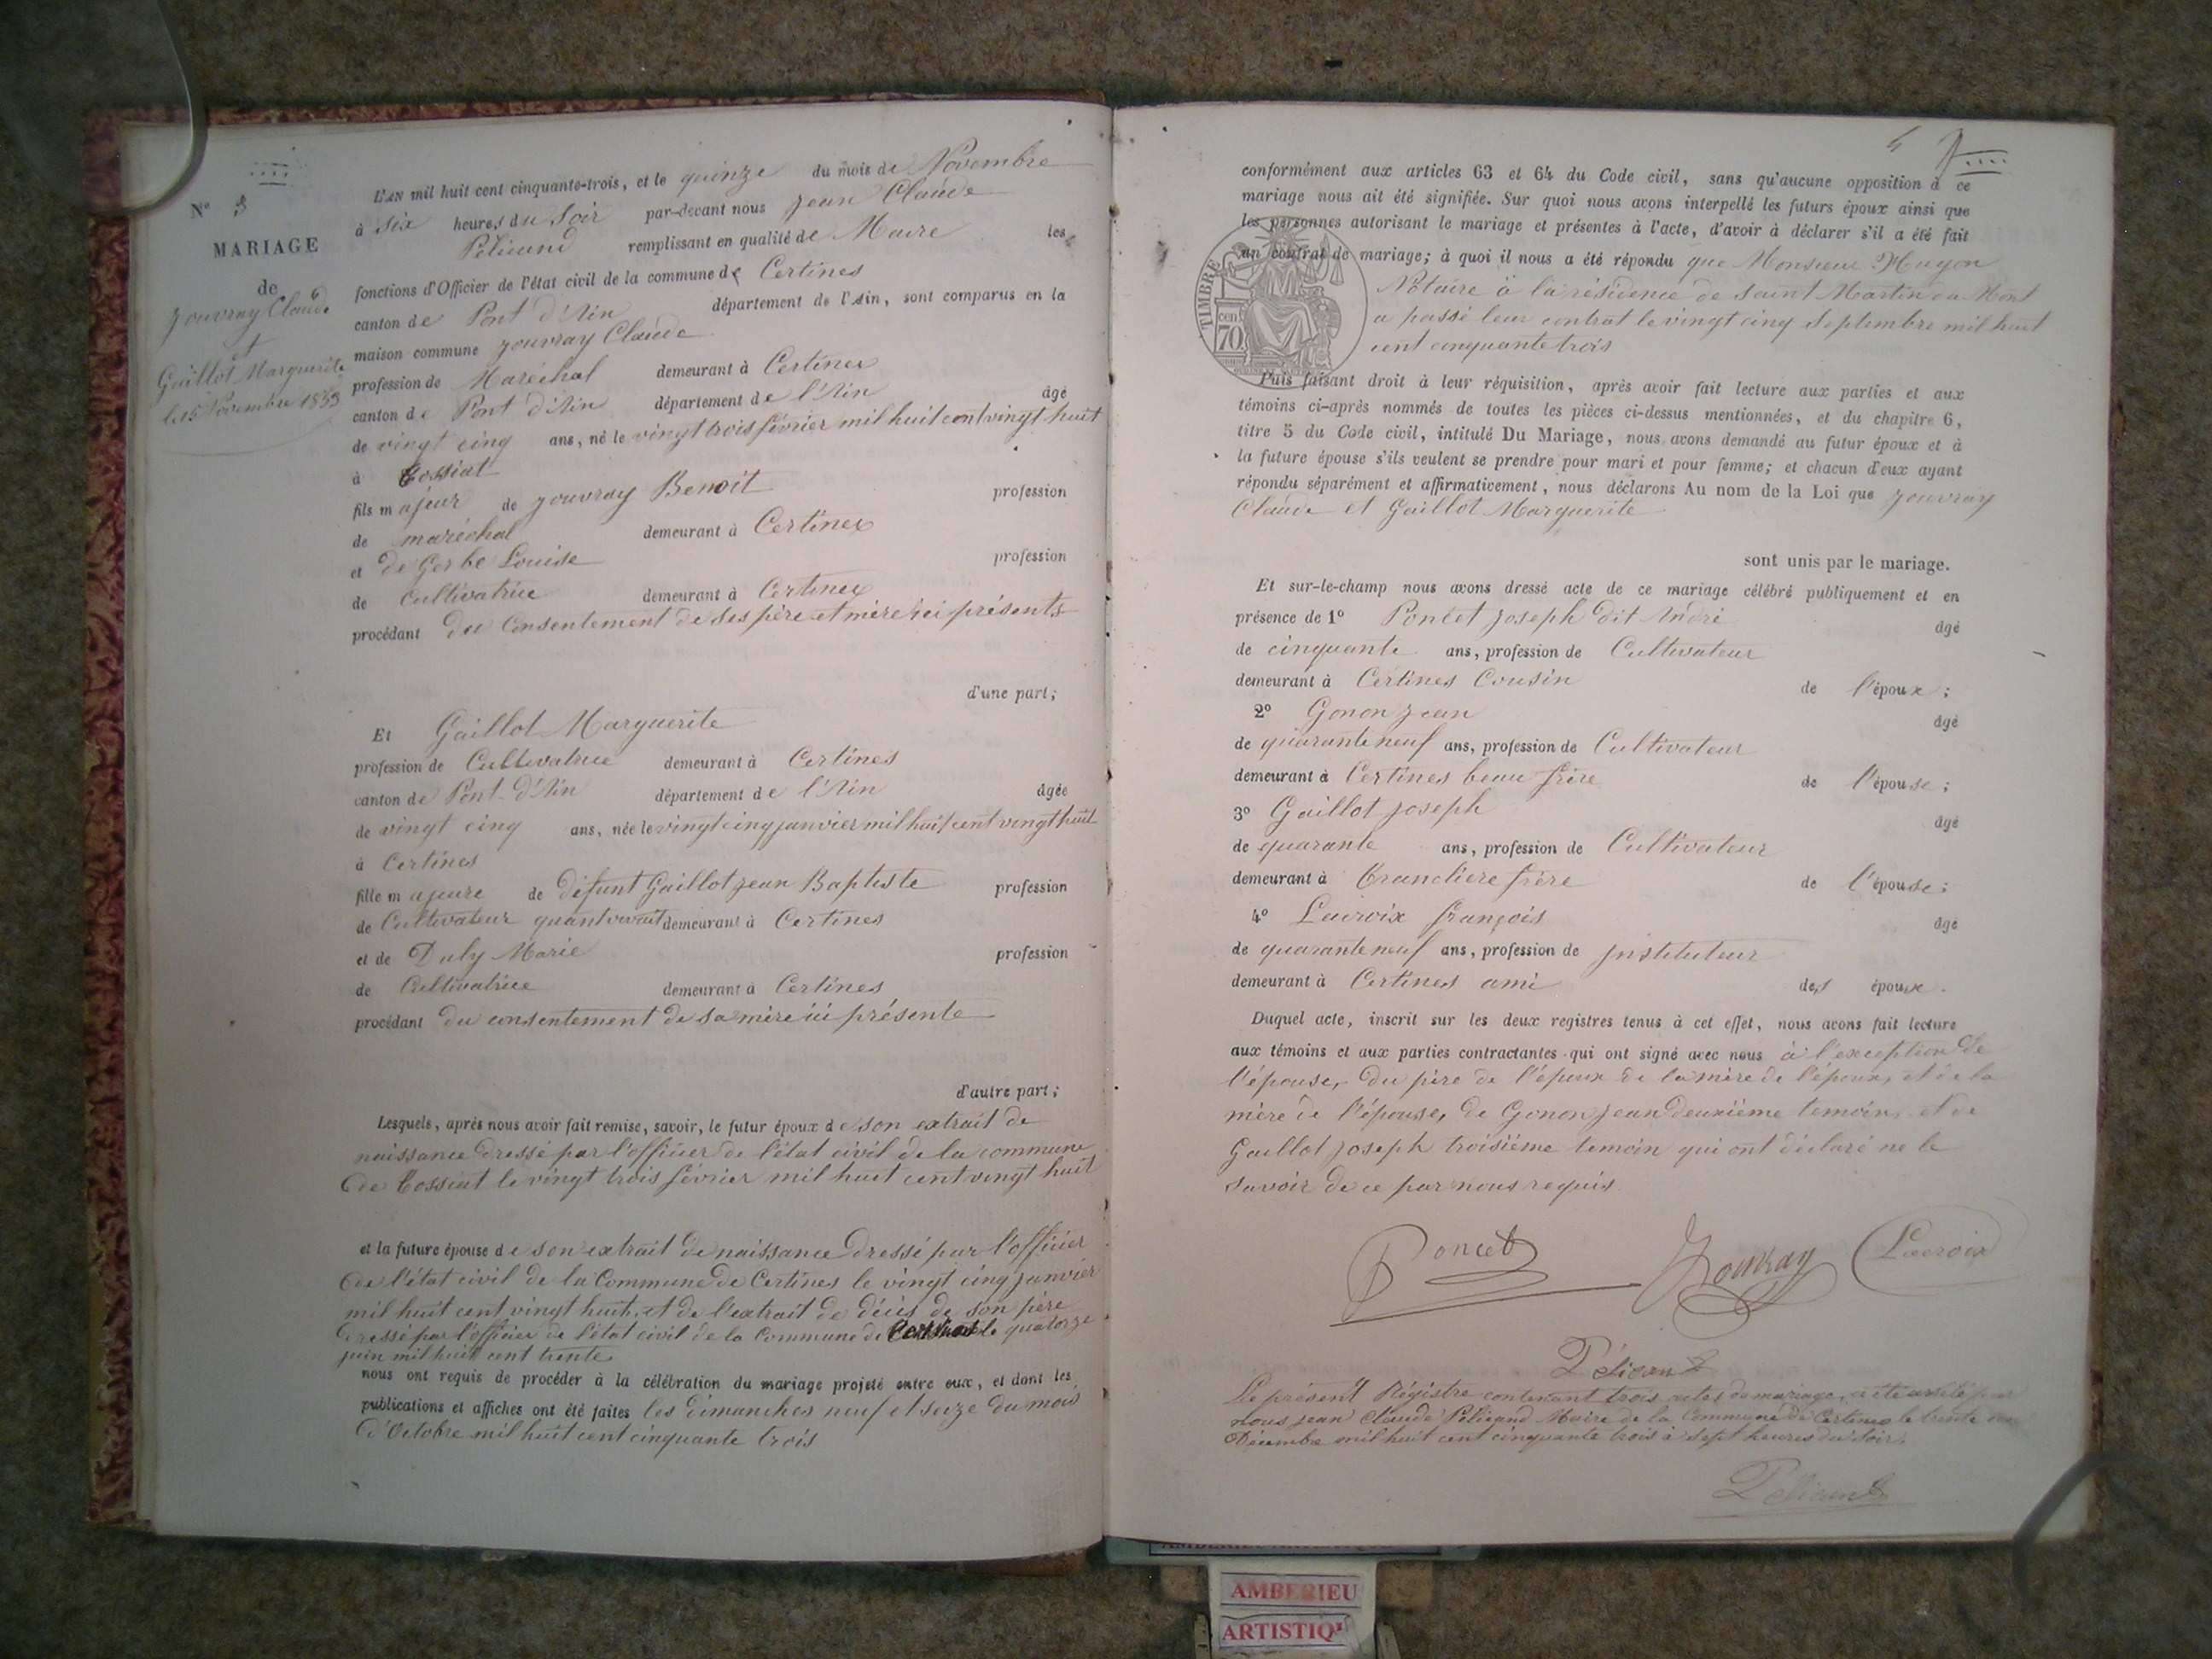 N° 3
MARIAGE
de
Jouvray Claude
et
Gaillot Marguerite
le 15 Novembre 1853
L'AN mil huit cent cinquante-trois, et le quinze du mois de Novembre
à six heures du Soir par-devant nous Jean Claude
Pélicand remplissant en qualité de Maire les
fonctions d'Officier de l'état civil de la commune de Certines
canton de Pont d'Ain département de l'Ain, sont comparus en la
maison commune Jouvray Claude
profession de Maréchal demeurant à Certines
canton de Pont d'Ain département de l'Ain âgé
de vingt cinq ans, né le vingt trois février mil huit cent vingt huit
à Tossiat
fils majeur de Jouvray Benoit profession
de maréchal demeurant à Certines
et de Gerbe Louise profession
de Cultivatrice demeurant à Certines
procédant du Consentement de ses père et mère ici présents
d'une part;
Et Gaillot Marguerite
profession de Cultivatrice demeurant à Certines
canton de Pont-d'Ain département de l'Ain âgée
de vingt cinq ans, née le vingt cinq janvier mil huit cent vingt huit
à Certines
fille majeure de défunt Gaillot Jean Baptiste profession
de Cultivateur quant vivait demeurant à Certines
et de Duby Marie profession
de Cultivatrice demeurant à Certines
procédant du consentement de sa mère ici présente
d'autre part;
Lesquels, après nous avoir fait remise, savoir, le futur époux de son extrait de
naissance dressé par l'officier de l'état civil de la commune
de Tossiat le vingt trois février mil huit cent vingt huit
et la future épouse de son extrait de naissance dressé par l'officier
de l'état civil de la Commune de Certines le vingt cinq janvier
mil huit cent vingt huit, et de l'extrait de décès de son père
dressé par l'officier de l'état civil de la Commune de Certines le quatorze
juin mil huit cent trente
nous ont requis de procéder à la célébration du mariage projeté entre eux, et dont les
publications et affiches ont été faites les dimanches neuf et seize du mois
d'Octobre mil huit cent cinquante trois
4
conformément aux articles 63 et 64 du Code civil, sans qu'aucune opposition à ce
mariage nous ait été signifiée. Sur quoi nous avons interpellé les futurs époux ainsi que
les personnes autorisant le mariage et présentes à l'acte, d'avoir à déclarer s'il a été fait
un contrat de mariage; à quoi il nous a été répondu que Monsieur Hugon
Notaire à la résidence de Saint Martin du Mont
a passé leur contrat le vingt cinq Septembre mil huit
cent cinquante trois
TIMBRE
cen
70
Puis faisant droit à leur réquisition, après avoir fait lecture aux parties et aux
témoins ci-après nommés de toutes les pièces ci-dessus mentionnées, et du chapitre 6,
titre 5 du Code civil, intitulé Du Mariage, nous avons demandé au futur époux et à
la future épouse s'ils veulent se prendre pour mari et pour femme; et chacun d'eux ayant
répondu séparément et affirmativement, nous déclarons Au nom de la Loi que Jouvray
Claude et Gaillot Marguerite
sont unis par le mariage.
Et sur-le-champ nous avons dressé acte de ce mariage célébré publiquement et en
présence de 1° Poncet Joseph dit André âgé
de cinquante ans, profession de Cultivateur
demeurant à Certines Cousin de l'époux;
2° Gonon Jean âgé
de quarante neuf ans, profession de Cultivateur
demeurant à Certines beau frère de l'épouse;
3° Gaillot Joseph âgé
de quarante ans, profession de Cultivateur
demeurant à Tranclière frère de l'épouse;
4° Lacroix François âgé
de quarante neuf ans, profession de Instituteur
demeurant à Certines ami des époux.
Duquel acte, inscrit sur les deux registres tenus à cet effet, nous avons fait lecture
aux témoins et aux parties contractantes qui ont signé avec nous à l'exception de
l'épouse, du père de l'époux de la mère de l'époux, et de la
mère de l'épouse, de Gonon Jean deuxième temoin, et de
Gaillot Joseph troisième temoin qui ont déclaré ne le
savoir de ce par nous requis.
Poncet Jouvray Lacroix
Pélicand
Le présent Régistre contenant trois actes de mariage, a été arrêté par
nous Jean Claude Pélicand Maire de la Commune de Certines le trente
Décembre mil huit cent cinquante trois à sept heures du Soir.
Pélicand
AMBERIEU
ARTISTIQ